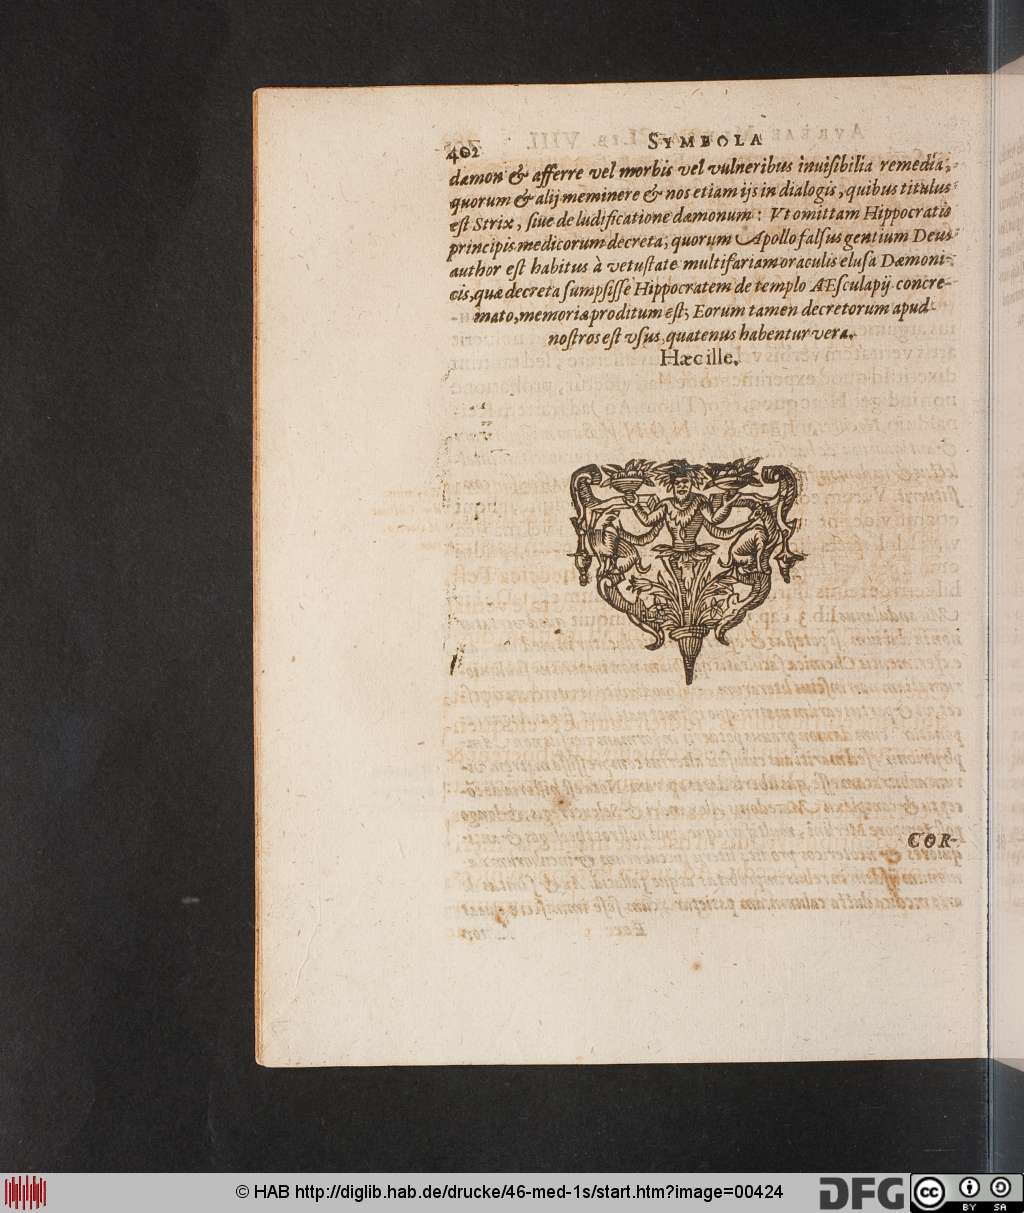 402 SYMBOLA
dæmon & afferre vel morbis vel vulneribus inuisibilia remedia,
quorum & alij meminere & nos etiam ijs in dialogis, quibus titulus
est Strix, siue de ludificatione dæmonum: Vt omittam Hippocratis
principis medicorum decreta, quorum Apollo falsus gentium Deus
author est habitus à vetustate multifariam oraculis elusa Dæmoni-
cis, quæ decreta sumpsisse Hippocratem de templo ÆEsculapij concre-
mato, memoriæ proditum est; Eorum tamen decretorum apud
nostros est vsus, quatenus habentur vera.
Hæc ille.
COR-
© HAB http://diglib.hab.de/drucke/46-med-1s/start.htm?image=00424
DFG
cc BY SA